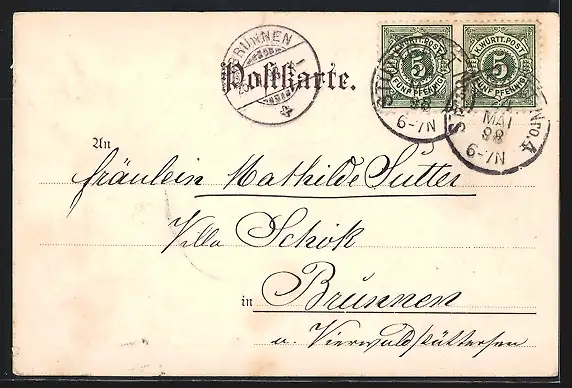 BRUNNEN
K.WÜRTT.POST
5
FÜNF PFENNIG
K.WÜRTT.POST
5
FÜNF PFENNIG
STUTTGART Nro. 4
MAI
98
6-7N
98
6-7N
Postkarte.
An
Fräulein Mathilde Sutter
Villa Schök
in Brunnen
a. Vierwaldstättersee